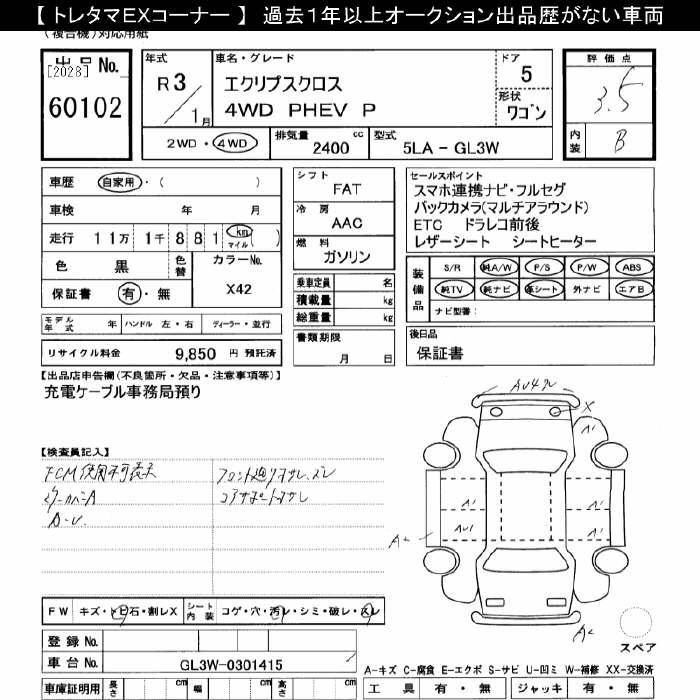 【 トレタマEXコーナー 】 過去1年以上オークション出品歴がない車両
(複合機)対応用紙
出品 No.
[2028]
60102
年式
R 3 / 1月
車名・グレード
エクリプスクロス
4WD PHEV P
ドア
5
形状
ワゴン
2WD・4WD
排気量 2400 cc
型式 5LA - GL3W
評価点
3.5
内装 B
車歴 自家用・( )
車検 年 月
走行 11万 1千 881 km マイル ( )
色 黒
色替
カラーNo. X42
保証書 有・無
モデル年式 年 ハンドル 左・右 ディーラー・並行
リサイクル料金 9,850 円 預託済
シフト
FAT
冷房
AAC
燃料
ガソリン
乗車定員 名
積載量 kg
総重量 kg
書類期限
月 日
セールスポイント
スマホ連携ナビ・フルセグ
バックカメラ(マルチアラウンド)
ETC ドラレコ前後
レザーシート シートヒーター
装備品
S/R 純A/W P/S P/W ABS
純TV 純ナビ 革シート 外ナビ エアB
ナビ型番:
後日品
保証書
【出品店申告欄(不良箇所・欠品・注意事項等)】
充電ケーブル事務局預り
【検査員記入】
FCM使用不可表示
ミラーカバーA
A-U.
コアサポートオサレ
X
A1
A1
A1
A1
A1
AU1
A2
A2
スペア
FW キズ・トビ石・割レX
シート内装 コゲ・穴・汚レ・シミ・破レ・スレ
登録 No.
車台 No. GL3W-0301415
車庫証明用 長さ cm 幅 cm 高さ cm
A-キズ C-腐食 E-エクボ S-サビ U-凹ミ W-補修 XX-交換済
工具 有・無 ジャッキ 有・無